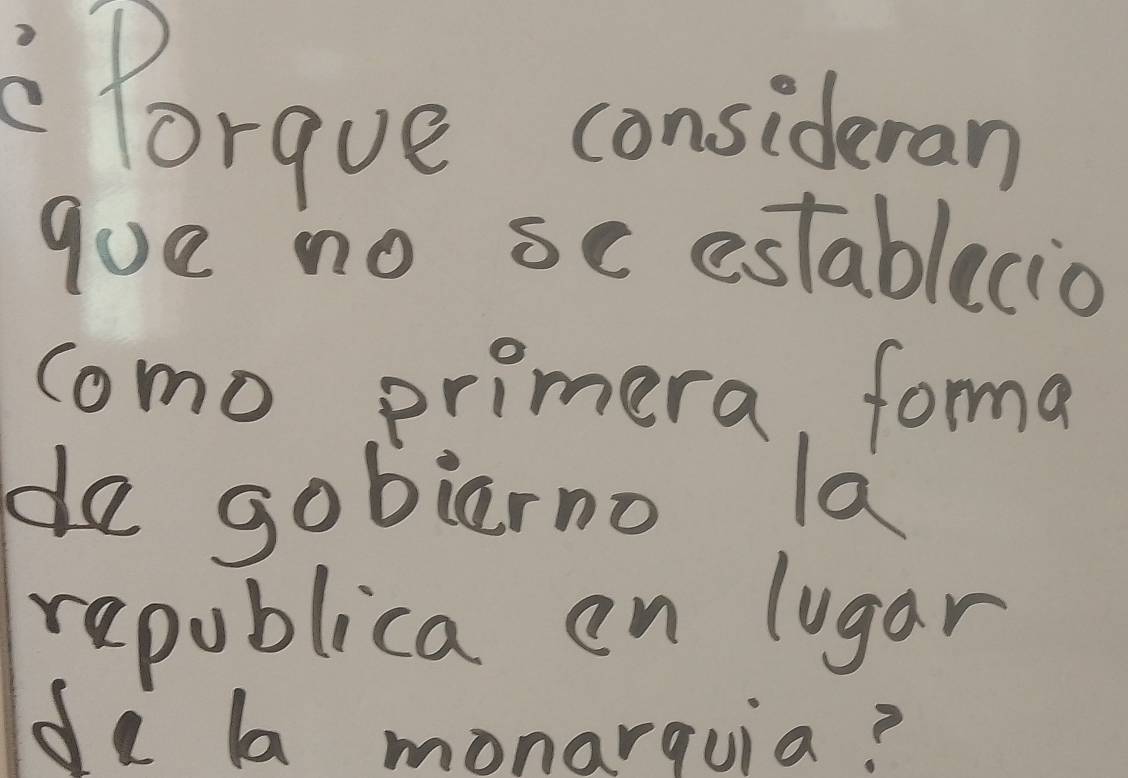 ¿Porque consideran
que no se establecio
como primera forma
de gobierno la
republica en lugar
de la monarquia?